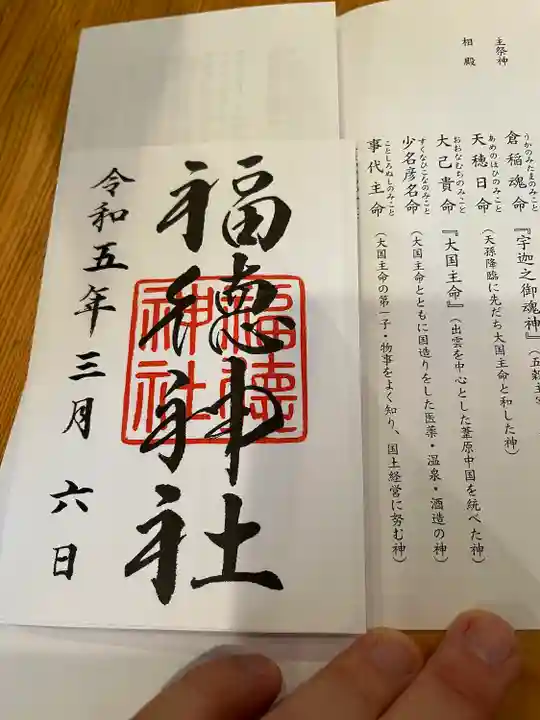 主祭神
相殿
倉稲魂命
うかのみたまのみこと
『宇迦之御魂神』
天穂日命
あめのほひのみこと
(天孫降臨に先だち大国主命と和した神)
大己貴命
おおなむちのみこと
『大国主命』(出雲を中心とした葦原中国を統べた神)
少名彦名命
すくなひこなのみこと
(大国主命とともに国造りをした医薬・温泉・酒造の神)
事代主命
ことしろぬしのみこと
(大国主命の第一子・物事をよく知り、国土経営に努む神)
福徳神社
福徳
神社
令和五年三月六日